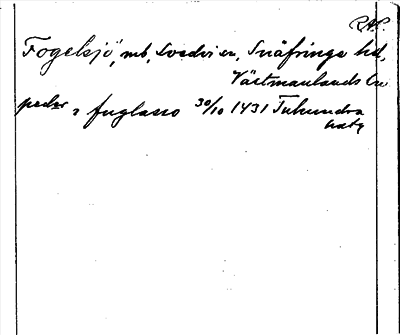 R.A.P.
Fogelsjö, mb, Svedvi sn, Snäfringe hd,
Västmanlands län
peder i fuglasio 30/10 1431 Tuhundra
hdtg